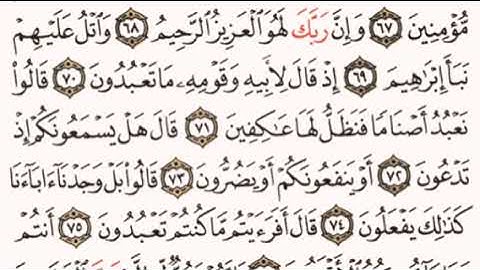 مُّؤْمِنِينَ ٦٧ وَإِنَّ رَبَّكَ لَهُوَ ٱلْعَزِيزُ ٱلرَّحِيمُ ٦٨ وَٱتْلُ عَلَيْهِمْ
نَبَأَ إِبْرَٰهِيمَ ٦٩ إِذْ قَالَ لِأَبِيهِ وَقَوْمِهِۦ مَا تَعْبُدُونَ ٧٠ قَالُوا۟
نَعْبُدُ أَصْنَامًا فَنَظَلُّ لَهَا عَٰكِفِينَ ٧١ قَالَ هَلْ يَسْمَعُونَكُمْ إِذْ
تَدْعُونَ ٧٢ أَوْ يَنفَعُونَكُمْ أَوْ يَضُرُّونَ ٧٣ قَالُوا۟ بَلْ وَجَدْنَآ ءَابَآءَنَا
كَذَٰلِكَ يَفْعَلُونَ ٧٤ قَالَ أَفَرَءَيْتُم مَّا كُنتُمْ تَعْبُدُونَ ٧٥ أَنتُمْ